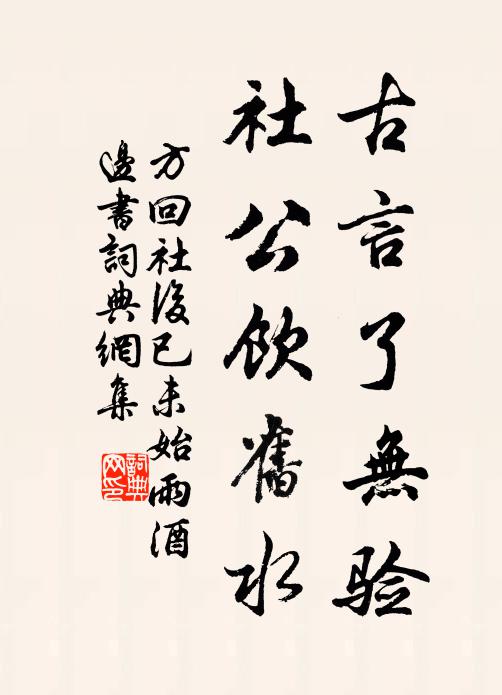 古言了無验
社公飲舊水
方回社後已未始雨酒
邊書詞典網集
詞典
网印